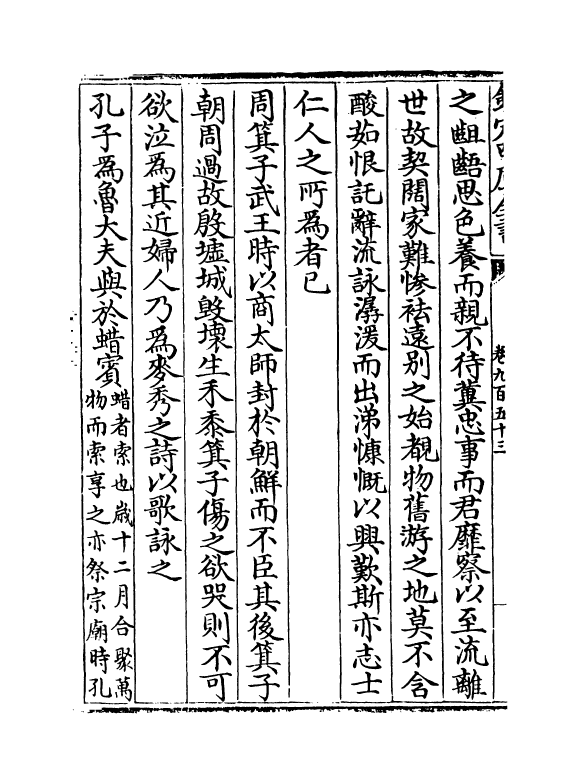 欽定四庫全書
卷九百五十三
之齟齬思色養而親不待冀忠事而君靡察以至流離
世故契闊家難慘袪遠别之始覩物舊游之地莫不含
酸茹恨託辭流詠潺湲而出涕慷慨以興歎斯亦志士
仁人之所為者已
周箕子武王時以商太師封於朝鮮而不臣其後箕子
朝周過故殷墟城毀壞生禾黍箕子傷之欲哭則不可
欲泣為其近婦人乃為麥秀之詩以歌詠之
孔子為魯大夫與於蜡賓蜡者索也歲十二月合聚萬
物而索享之亦祭宗廟時孔